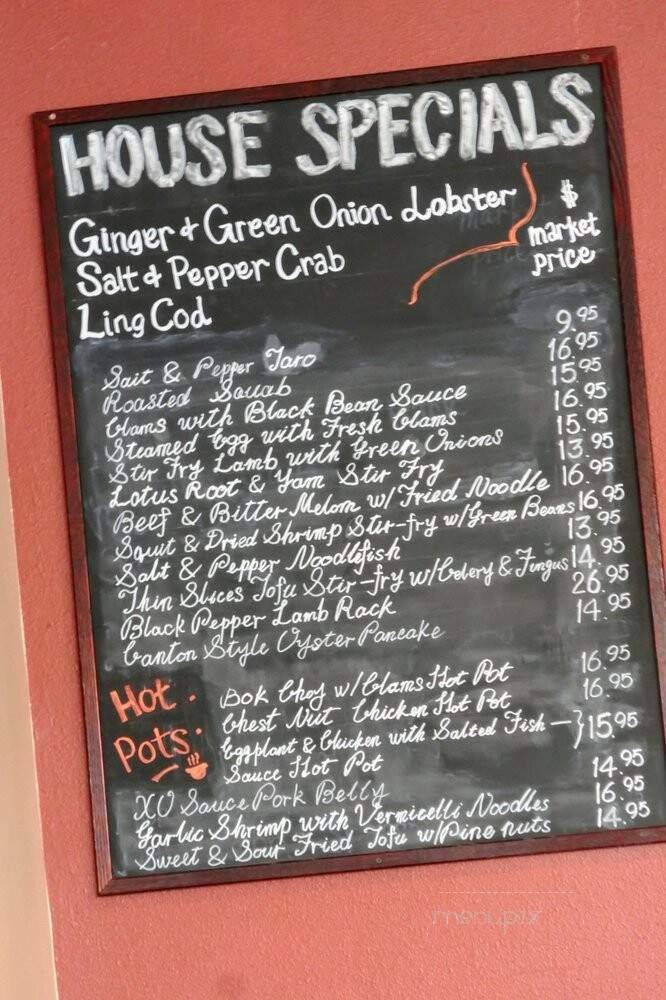 HOUSE SPECIALS
Ginger & Green Onion Lobster
Salt & Pepper Crab
Ling Cod
$ market price
Salt & Pepper Taro 9.95
Roasted Squab 16.95
Clams with Black Bean Sauce 15.95
Steamed Egg with Fresh Clams 16.95
Stir Fry Lamb with Green Onions 15.95
Lotus Root & Yam Stir Fry 13.95
Beef & Bitter Melon w/ Fried Noodle 16.95
Squit & Dried Shrimp Stir-fry w/Green Beans 16.95
Salt & Pepper Noodlefish 13.95
Thin Slices Tofu Stir-fry w/Celery & Fungus 14.95
Black Pepper Lamb Rack 26.95
Canton Style Oyster Pancake 14.95
Hot Pots:
Bok Choy w/Clams Hot Pot 16.95
Chest Nut Chicken Hot Pot 16.95
Eggplant & Chicken with Salted Fish
Sauce Hot Pot 15.95
XO Sauce Pork Belly 14.95
Garlic Shrimp with Vermicelli Noodles 16.95
Sweet & Sour Fried Tofu w/Pine nuts 14.95
menupix